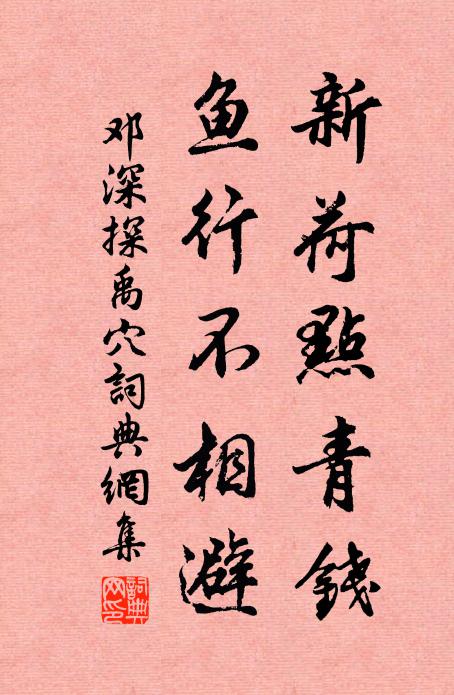 新荷點青錢
鱼行不相避
邓深探禹穴詞典網集
詞典網印